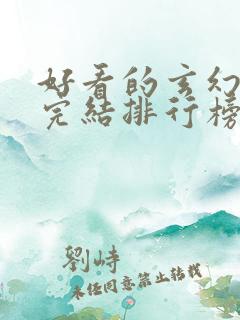 好看的玄幻
完結排行榜
劉峙
未经同意禁止转载